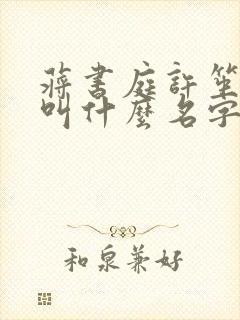 蔣書庭許笙
叫什麼名字
和泉兼好